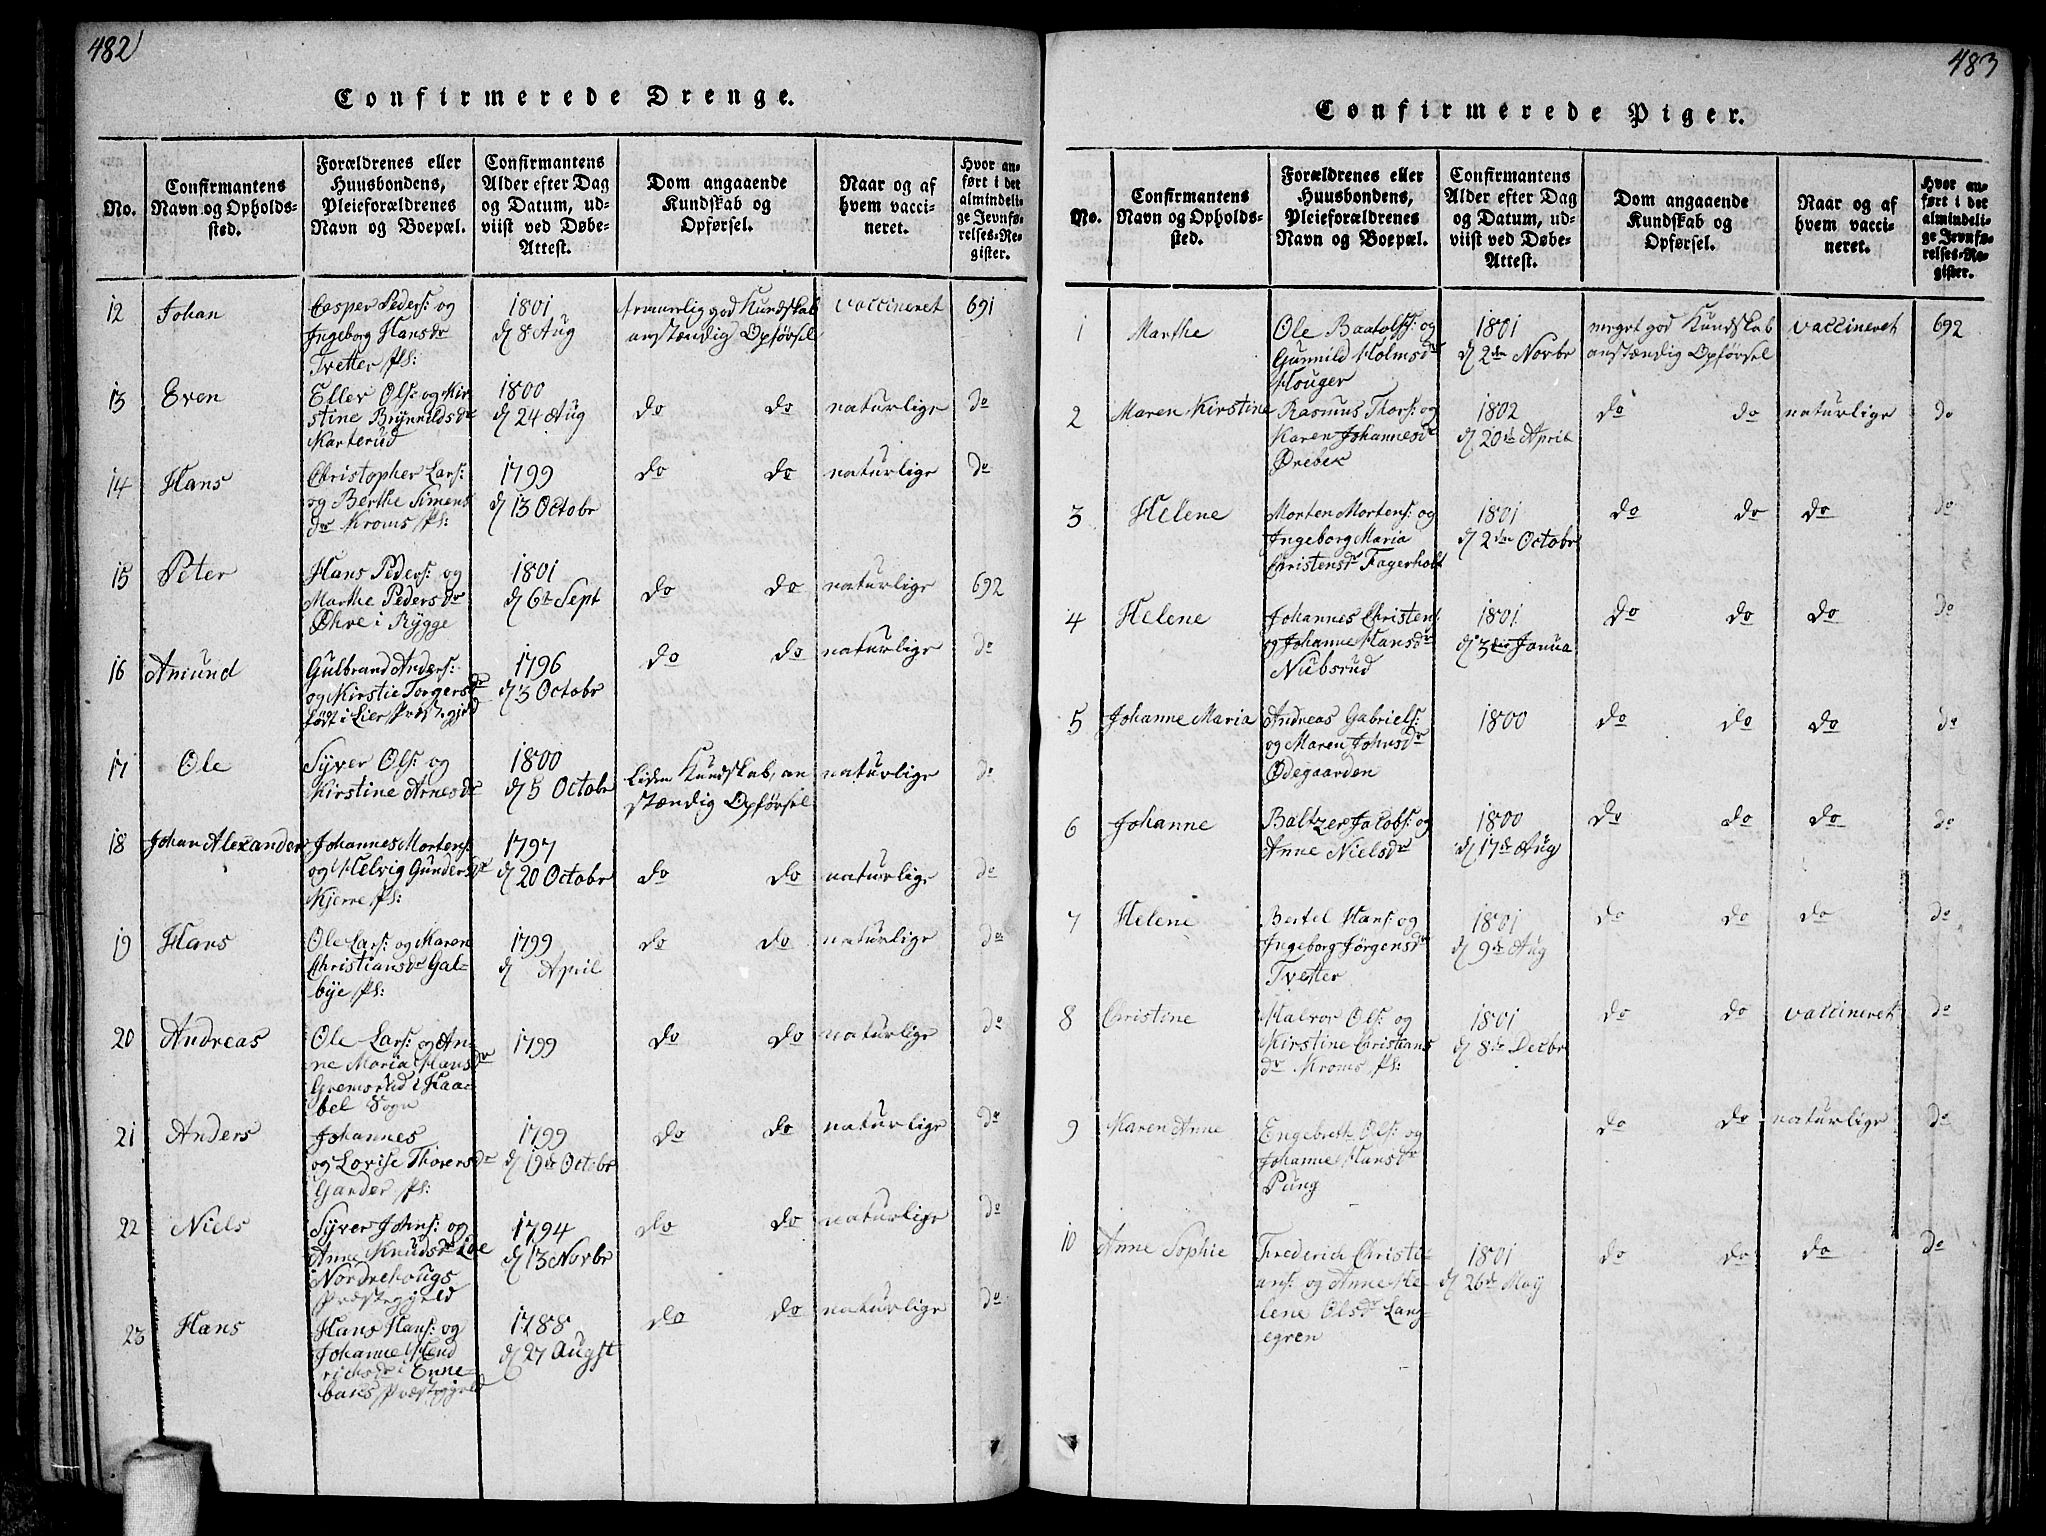 482
Confirmerede Drenge.
No.
Confirmantens
Navn og Opholds-
sted.
Forældrenes eller
Huusbondens,
Pleieforældrenes
Navn og Boepæl.
Confirmantens
Alder efter Dag
og Datum, ud-
viist ved Døbe-
Attest.
Dom angaaende
Kundskab og
Opførsel.
Naar og af
hvem vacci-
neret.
Hvor an-
ført i det
almindeli-
ge Jevnfø-
relses-Re-
gister.
12 Johan
Casper Peders: og
Ingeborg Hansdr
Tvetter Pl:
1801
d 8 Aug
temmelig god Kundskab
anstændig Opførsel
vaccineret
691
13 Even
Eller Ols: og Kir
stine Brynildsdr
Karterud
1800
d 24 Aug
do do
naturlige
do
14 Hans
Christopher Lars:
og Berthe Simens
dr Kroms Pl:
1799
d 13 Octobr
do do
naturlige
do
15 Peter
Hans Peders: og
Marthe Pedersdr
Øhre i Rygge
1801
d 6te Sept
do do
naturlige
692
16 Amund
Gulbrand Anders:
og Kirstie Torgersdr
født i Lier Præstegjeld
1796
d 3 Octobr
do do
naturlige
do
17 Ole
Syver Ols: og
Kirstine Arnesdr
1800
d 5 Octobr
Liden Kundskab, an
stændig Opførsel
naturlige
do
18 Johan Alexander
Johannes Mortens:
og Helvig Gundersdr
Kjerre Pl:
1797
d 20 Octobr
do do
naturlige
do
19 Hans
Ole Lars: og Maren
Christiansdr Gal-
bye Pl:
1799
d April
do do
naturlige
do
20 Andreas
Ole Lars: og An-
ne Maria Hansdr
Gremsrud i Haa-
bel Sogn
1799
do do
naturlige
do
21 Anders
Johannes
og Lovise Thorersdr
Gander Pl:
1799
d 19de Octobr
do do
naturlige
do
22 Niels
Syver Johns: og
Anne Knudsdr Loe
Nordrehougs
Præstegjeld
1794
d 13 Novbr
do do
naturlige
do
23 Hans
Hans Hans: og
Johanne Hend
richsdr i Enne-
baks Præstegjeld
1788
d 27 Augst
do do
naturlige
do
483
Confirmerede Piger.
No.
Confirmantens
Navn og Opholds-
sted.
Forældrenes eller
Huusbondens,
Pleieforældrenes
Navn og Boepæl.
Confirmantens
Alder efter Dag
og Datum, ud-
viist ved Døbe-
Attest.
Dom angaaende
Kundskab og
Opførsel.
Naar og af
hvem vacci-
neret.
Hvor an-
ført i det
almindeli-
ge Jevnfø-
relses-Re-
gister.
1 Marthe
Ole Baatolfs: og
Gunnild Holmsdr
Houger
1801
d 2den Novbr
meget god Kundskab
anstændig Opførsel
vaccineret
692
2 Maren Kirstine
Rasmus Thors: og
Karen Johannesdr
Ørebek
1802
d 20de April
do do
naturlige
do
3 Helene
Morten Mortens: og
Ingeborg Maria
Christensdr Fagerholt
1801
d 2den Octobr
do do
do
do
4 Helene
Johannes Christens:
og Johanne Hansdr
Nubsrud
1801
d 3die Janua
do do
do
do
5 Johanne Maria
Andreas Gabriels:
og Maren Johnsdr
Ødegaarden
1800
do do
do
do
6 Johanne
Baltzer Jacobs: og
Anne Nielsdr
1800
d 17de Aug
do do
do
do
7 Helene
Bertel Hans: og
Ingeborg Jørgensdr
Tvetter
1801
d 9de Aug
do do
do
do
8 Christine
Halvor Ols: og
Kirstine Christians
dr Kroms Pl:
1801
d 8de Decbr
do do
vaccineret
do
9 Karen Anne
Engebreth Ols: og
Johanne Hansdr
Pung
do do
naturlige
do
10 Anne Sophie
Frederich Christi-
ans: og Anne He-
lene Olsdr Lang-
egren
1801
d 26de May
do do
do
do